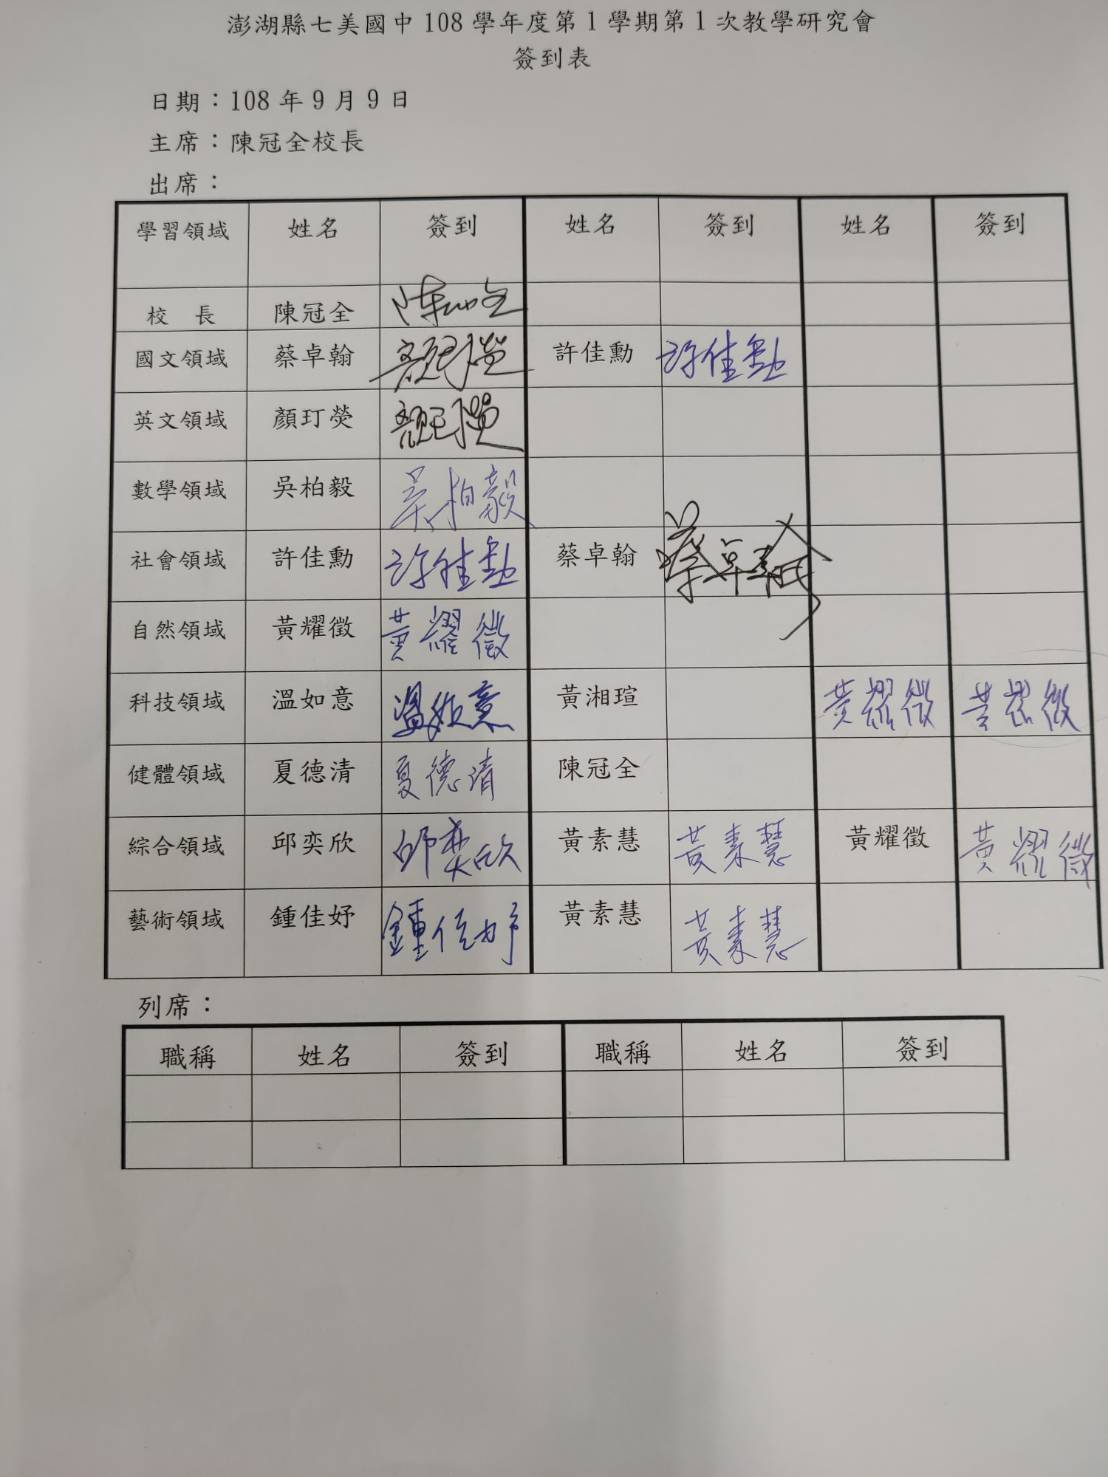 澎湖縣七美國中 108 學年度第 1 學期第 1 次教學研究會
簽到表
日期：108 年 9 月 9 日
主席：陳冠全校長
出席：
學習領域 姓名 簽到 姓名 簽到 姓名 簽到
校 長 陳冠全 陳冠全
國文領域 蔡卓翰 顏玎熒 許佳勳 許佳勳
英文領域 顏玎熒 顏玎熒
數學領域 吳柏毅 吳柏毅
社會領域 許佳勳 許佳勳 蔡卓翰 蔡卓翰
自然領域 黃耀徵 黃耀徵
科技領域 溫如意 溫如意 黃湘瑄 黃耀徵 黃耀徵
健體領域 夏德清 夏德清 陳冠全
綜合領域 邱奕欣 邱奕欣 黃素慧 黃素慧 黃耀徵 黃耀徵
藝術領域 鍾佳妤 鍾佳妤 黃素慧 黃素慧
列席：
職稱 姓名 簽到 職稱 姓名 簽到